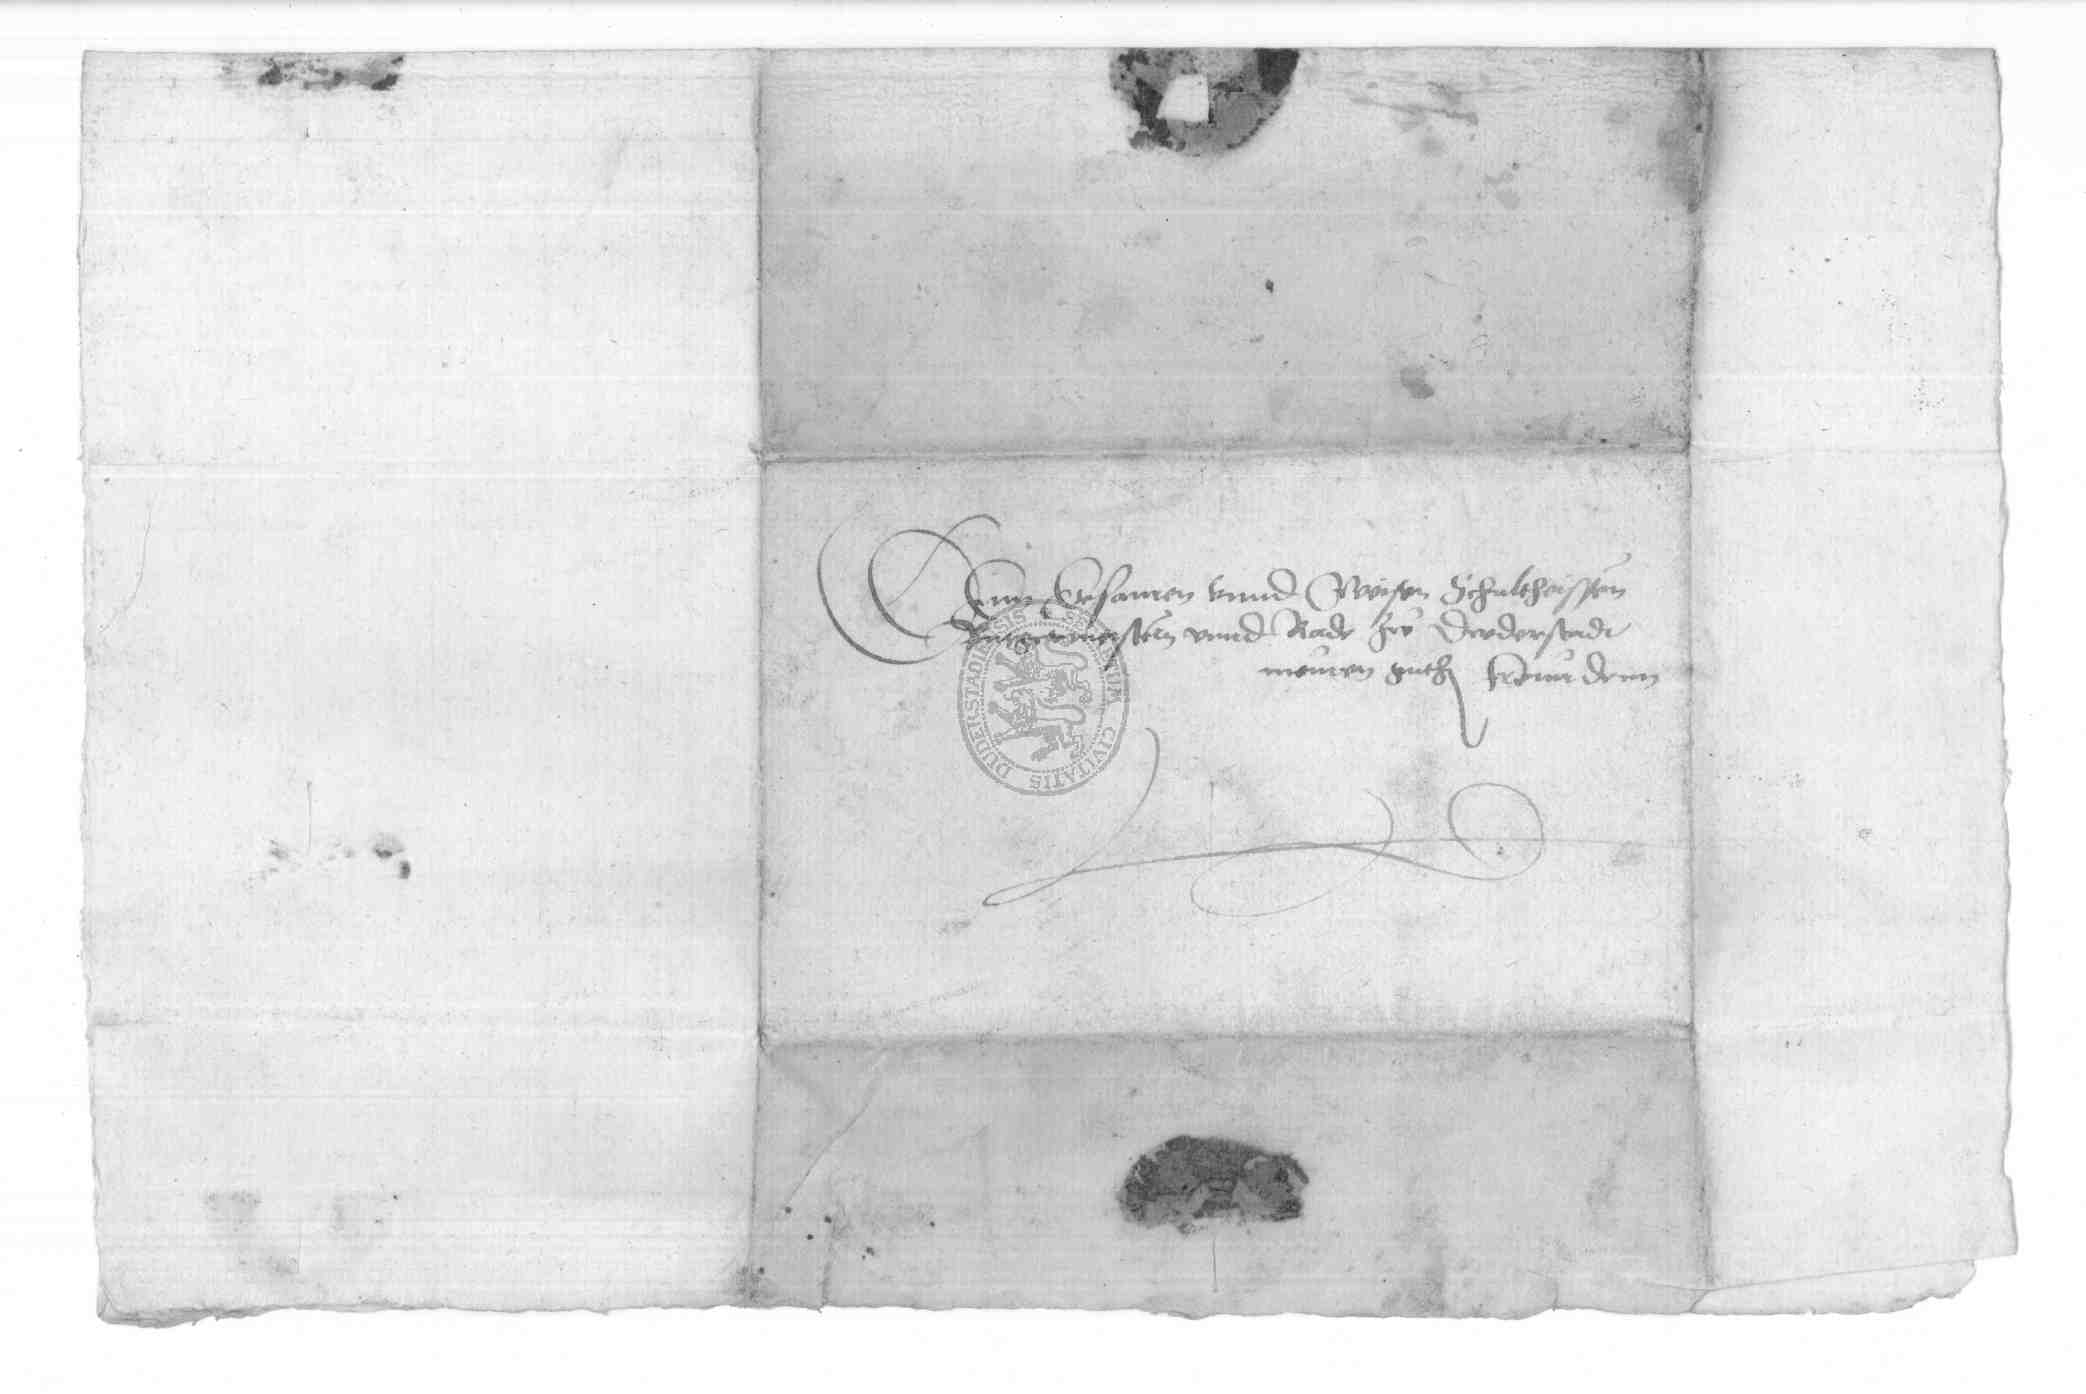 Denn Ersamen vnnd Weisen Schultheissen
Burgermeistern vnnd Rade zů Duderstadt
meinen guthen freunden
SIGILLUM CIVITATIS DUDERSTADIENSIS